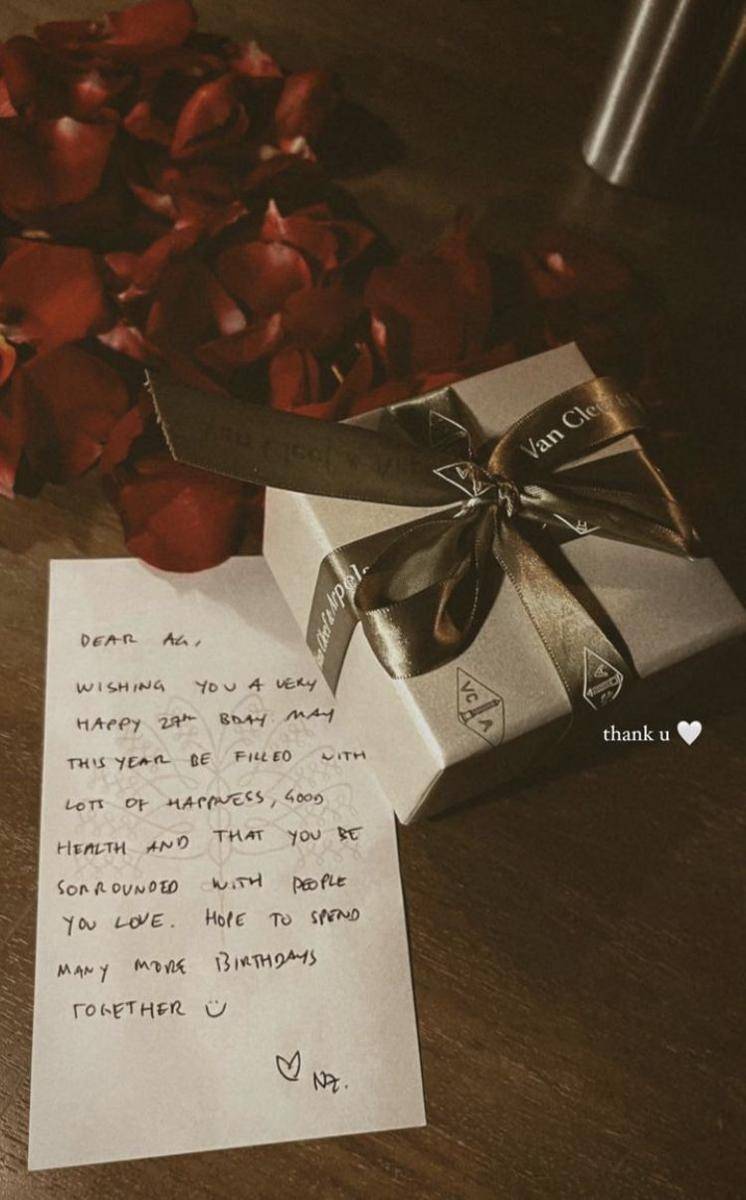 Van Cleef
Van Cleef & Arp
Cleef & Arpels
VC
A
thank u 🤍
DEAR AG,
WISHING YOU A VERY
HAPPY 27th BDAY. MAY
THIS YEAR BE FILLED WITH
LOTS OF HAPPNESS, GOOD
HEALTH AND THAT YOU BE
SORROUNDED WITH PEOPLE
YOU LOVE. HOPE TO SPEND
MANY MORE BIRTHDAYS
TOGETHER
NZ.